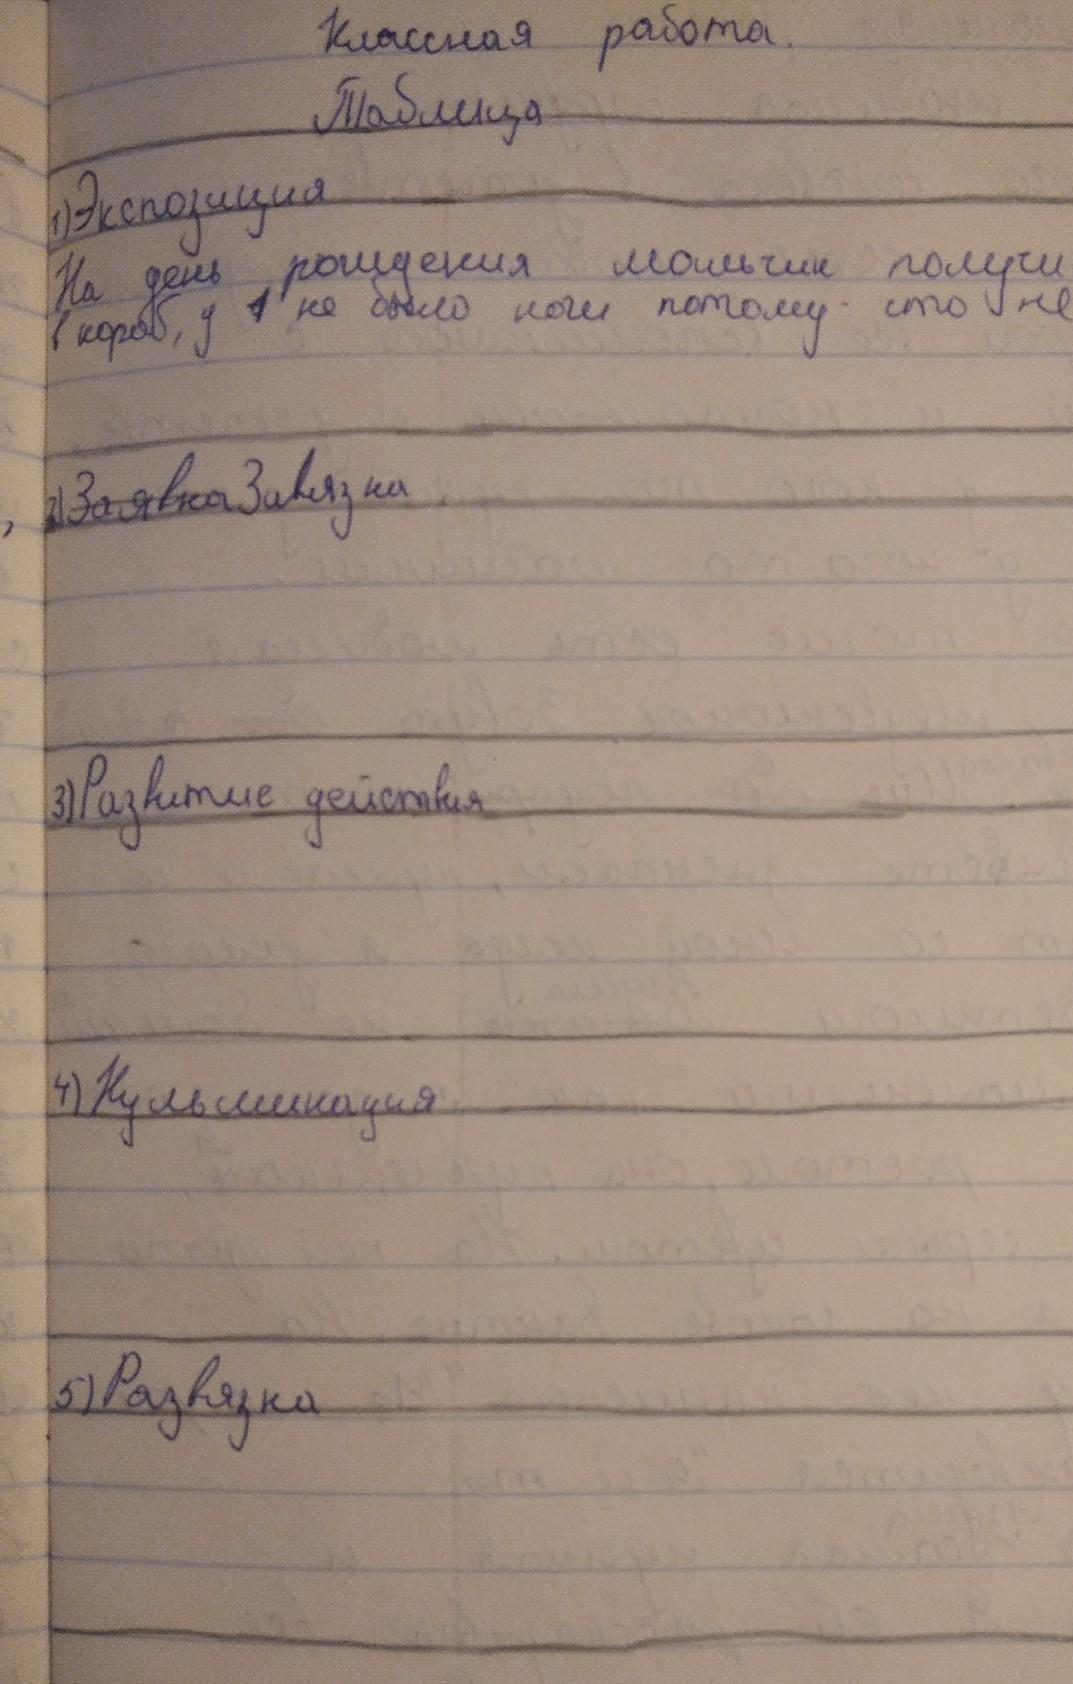 Классная работа.
Таблица
1) Экспозиция
На день рождения мальчик получи
в короб, у 1 не было ноги потому что не
2) Заявка Завязка
3) Развитие действия
4) Кульминация
5) Развязка